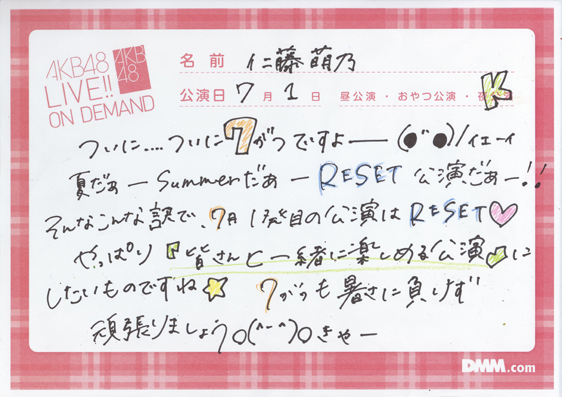 AKB48
LIVE!!
ON DEMAND
AKB
48
名前 仁藤萌乃
公演日 7月1日 昼公演・おやつ公演・夜 K
ついに....ついに7がつですよ——(●´●)/イエーイ
夏だぁーSummerだぁーRESET公演だぁー!!
そんなこんな訳で、7月1発目の公演はRESET♡
やっぱり『皆さんと一緒に楽しめる公演』に
したいものですね☆ 7がつも暑さに負けず
頑張りましょうo(^-^)oきゃー
DMM.com